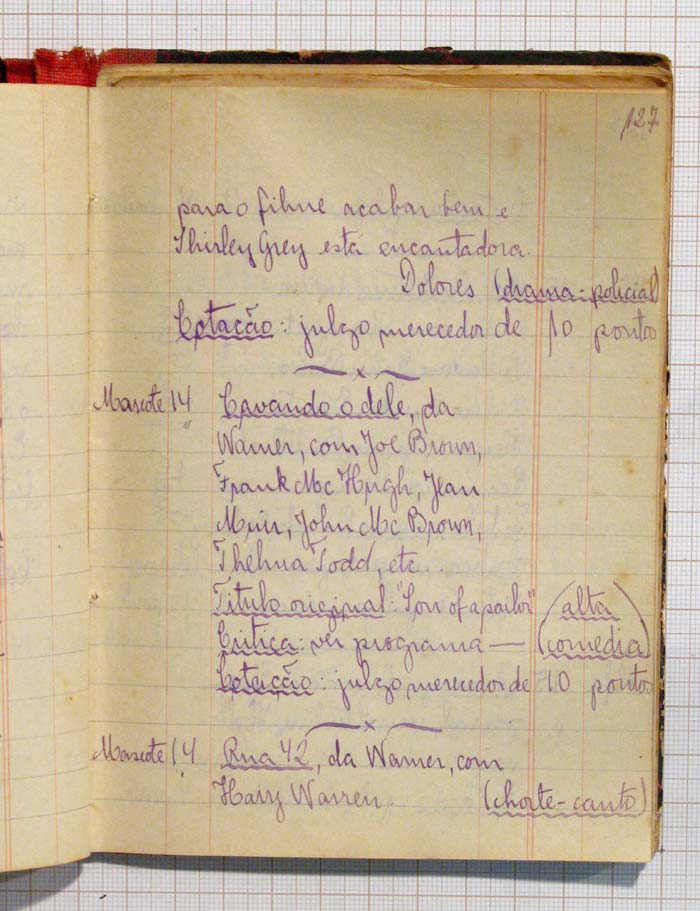 127
para o filme acabar bem e
Shirley Grey está encantadora.
Dolores (drama-policial)
Cotação: julgo merecedor de 10 pontos
x
Mascote 14 Cavando o dele, da
Warner, com Joe Brown,
Frank Mc Hugh, Jean
Muir, John Mc Brown,
Thelma Todd, etc.
Titulo original: "Son of a sailor" (alta
Critica: ver programa — comedia)
Cotação: julgo merecedor de 10 pontos
x
Mascote 14 Rua 42, da Warner, com
Harry Warren. (chorte-canto)